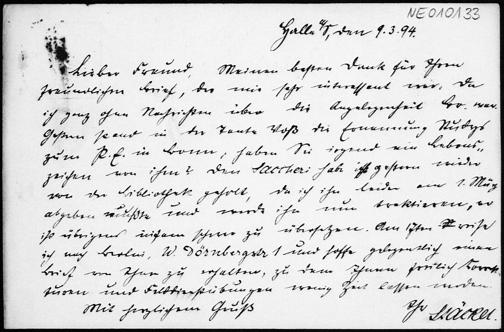 NE010133
Halle a/S, den 9.3.94.
Lieber Freund, Meinen besten Dank für Ihren
freundlichen Brief, der mir sehr interessant war, da
ich ganz ohne Nachrichten über die Angelegenheit war.
Gestern stand in der Tante Voß die Ernennung Studys
zum P.E. in Bonn; haben Sie irgend ein Lebens-
zeichen von ihm? Den Saccheri hab ich gestern wieder
von der Bibliothek geholt, da ich ihn leider am 1. 
abgeben mußte und werde ihn nun traktieren, er
ist übrigens schwer zu übersetzen. Am 17ten reise
ich nach Berlin, W. Dörnbergstr 1 und hoffe gelegentlich einen
Brief von Ihnen zu erhalten, zu dem Ihnen freilich Korrek-
turen und übungen wenig Zeit lassen werden.
Mit herzlichem Gruß
Ihr Stäckel.